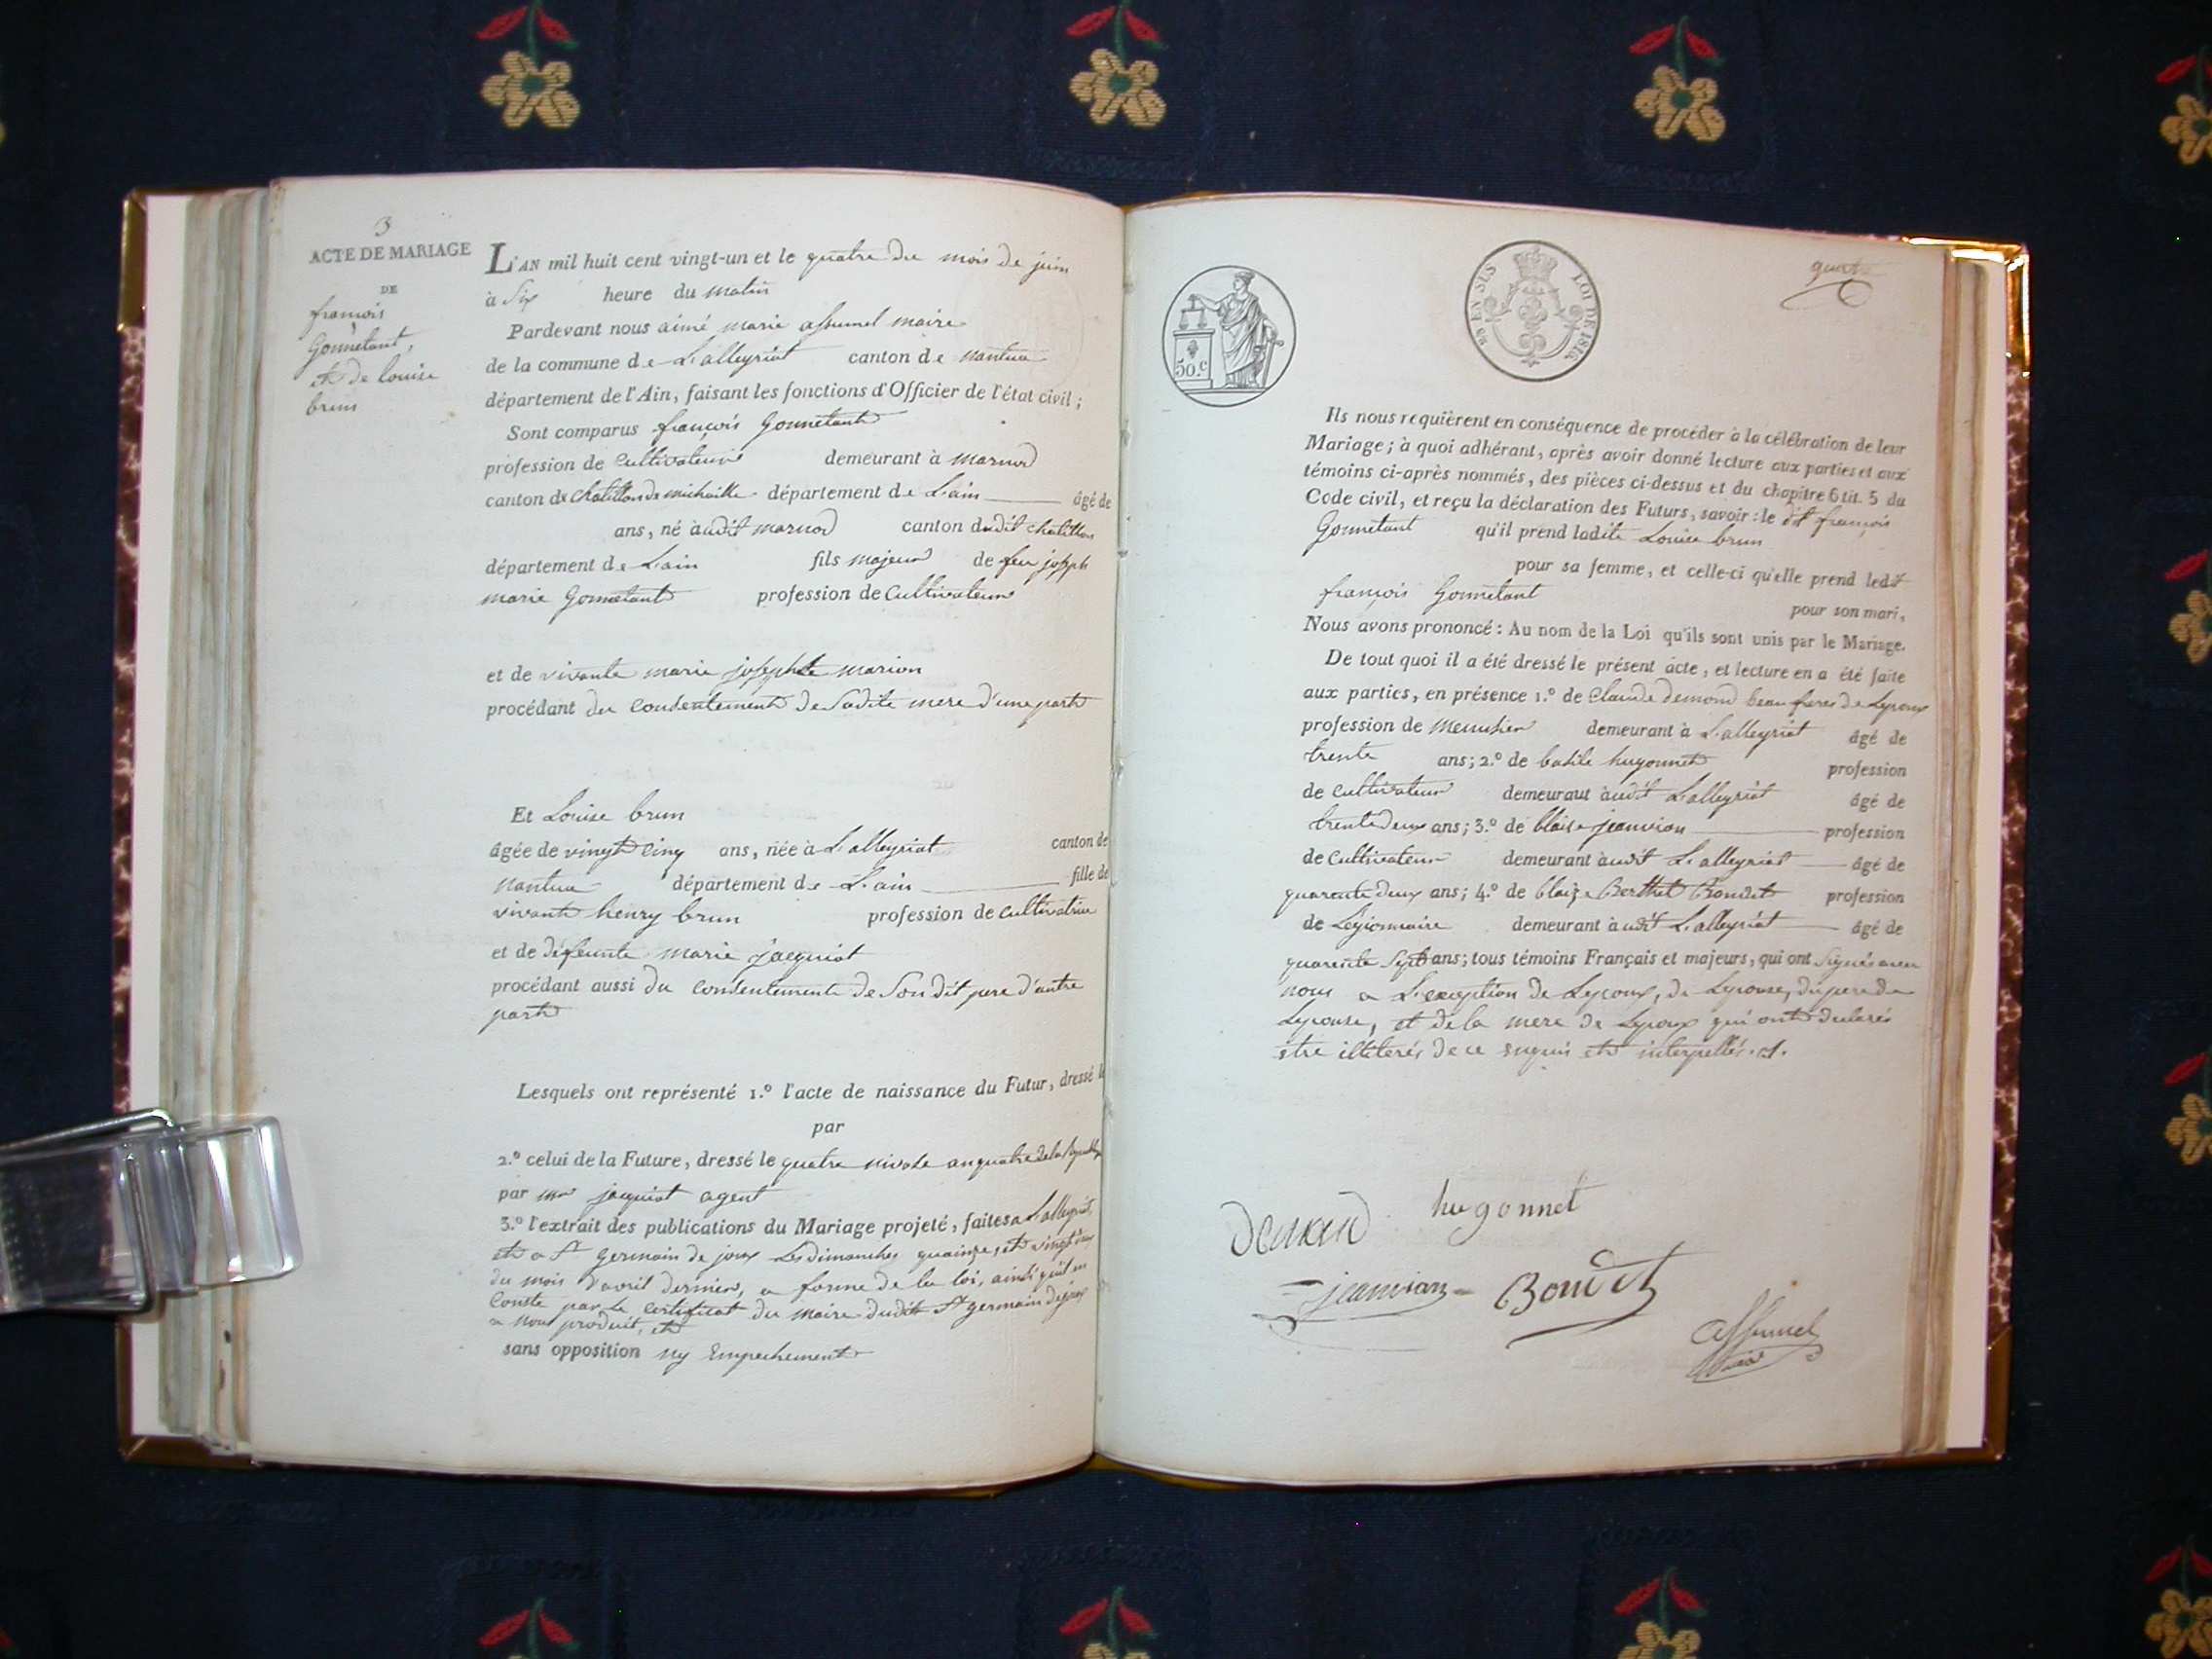 3
ACTE DE MARIAGE
DE
françois
Gonnetant,
et de louise
brun
L'AN mil huit cent vingt-un et le quatre du mois de juin
à Six heure du matin
Pardevant nous aimé marie assumel maire
de la commune de Lalleyriat canton de nantua
département de l'Ain, faisant les fonctions d'Officier de l'état civil ;
Sont comparus françois Gonnetant
profession de Cultivateur demeurant à marnod
canton de Chatillon de michaille département de L'ain âgé de
ans, né audit marnod canton dudit chatillon
département de L'ain fils majeur de feu joseph
marie Gonnetant profession de Cultivateur
et de vivante marie josephte marion
procédant du Consentement de Sadite mere d'une part
Et Louise brun
âgée de vingt Cinq ans, née à Lalleyriat canton de
nantua département de L'ain fille de
vivant henry brun profession de cultivatrice
et de défeunte marie jacquiot
procédant aussi du Consentement de Son dit pere d'autre
part
Lesquels ont représenté 1.º l'acte de naissance du Futur, dressé le
par
2.º celui de la Future, dressé le quatre nivose an quatre de la
par mr jacquiot agent
3.º l'extrait des publications du Mariage projeté, faites a Lalleyriat,
et a St germain de joux Les dimanches quainze, et vingt deux
du mois d'avril dernier, a forme de la loi, ainsi qu'il en
Conste par Le certificat du maire dudit St germain de joux
a nous produit, et
sans opposition ny Empechement
50.c
EN SUS LOI DE 1816
Ils nous requièrent en conséquence de procéder à la célébration de leur
Mariage ; à quoi adhérant, après avoir donné lecture aux parties et aux
témoins ci-après nommés, des pièces ci-dessus et du chapitre 6 tit. 5 du
Code civil, et reçu la déclaration des Futurs, savoir : le dit françois
Gonnetant qu'il prend ladite Louise brun
pour sa femme, et celle-ci qu'elle prend ledit
françois Gonnetant pour son mari,
Nous avons prononcé : Au nom de la Loi qu'ils sont unis par le Mariage.
De tout quoi il a été dressé le présent acte, et lecture en a été faite
aux parties, en présence 1.º de Claude demond beau frere de Lepoux
profession de menusier demeurant à Lalleyriat âgé de
trente ans ; 2.º de basile hugonnet profession
de cultivateur demeurant audit Lalleyriat âgé de
trente deux ans ; 3.º de blaise jeanvion profession
de Cultivateur demeurant audit Lalleyriat âgé de
quarente deux ans ; 4.º de blaize Berthet Boudet profession
de Légionnaire demeurant audit Lalleyriat âgé de
quarente Sept ans ; tous témoins Français et majeurs, qui ont Signés avec
nous a L'exception de Lepoux, de Lepouse, du pere de
Lepouse, et de la mere de Lepoux qui ont declarés
etre illiterés de ce enquis et interpellés.
hugonnet
jeanvion
Boudet
assumel
maire